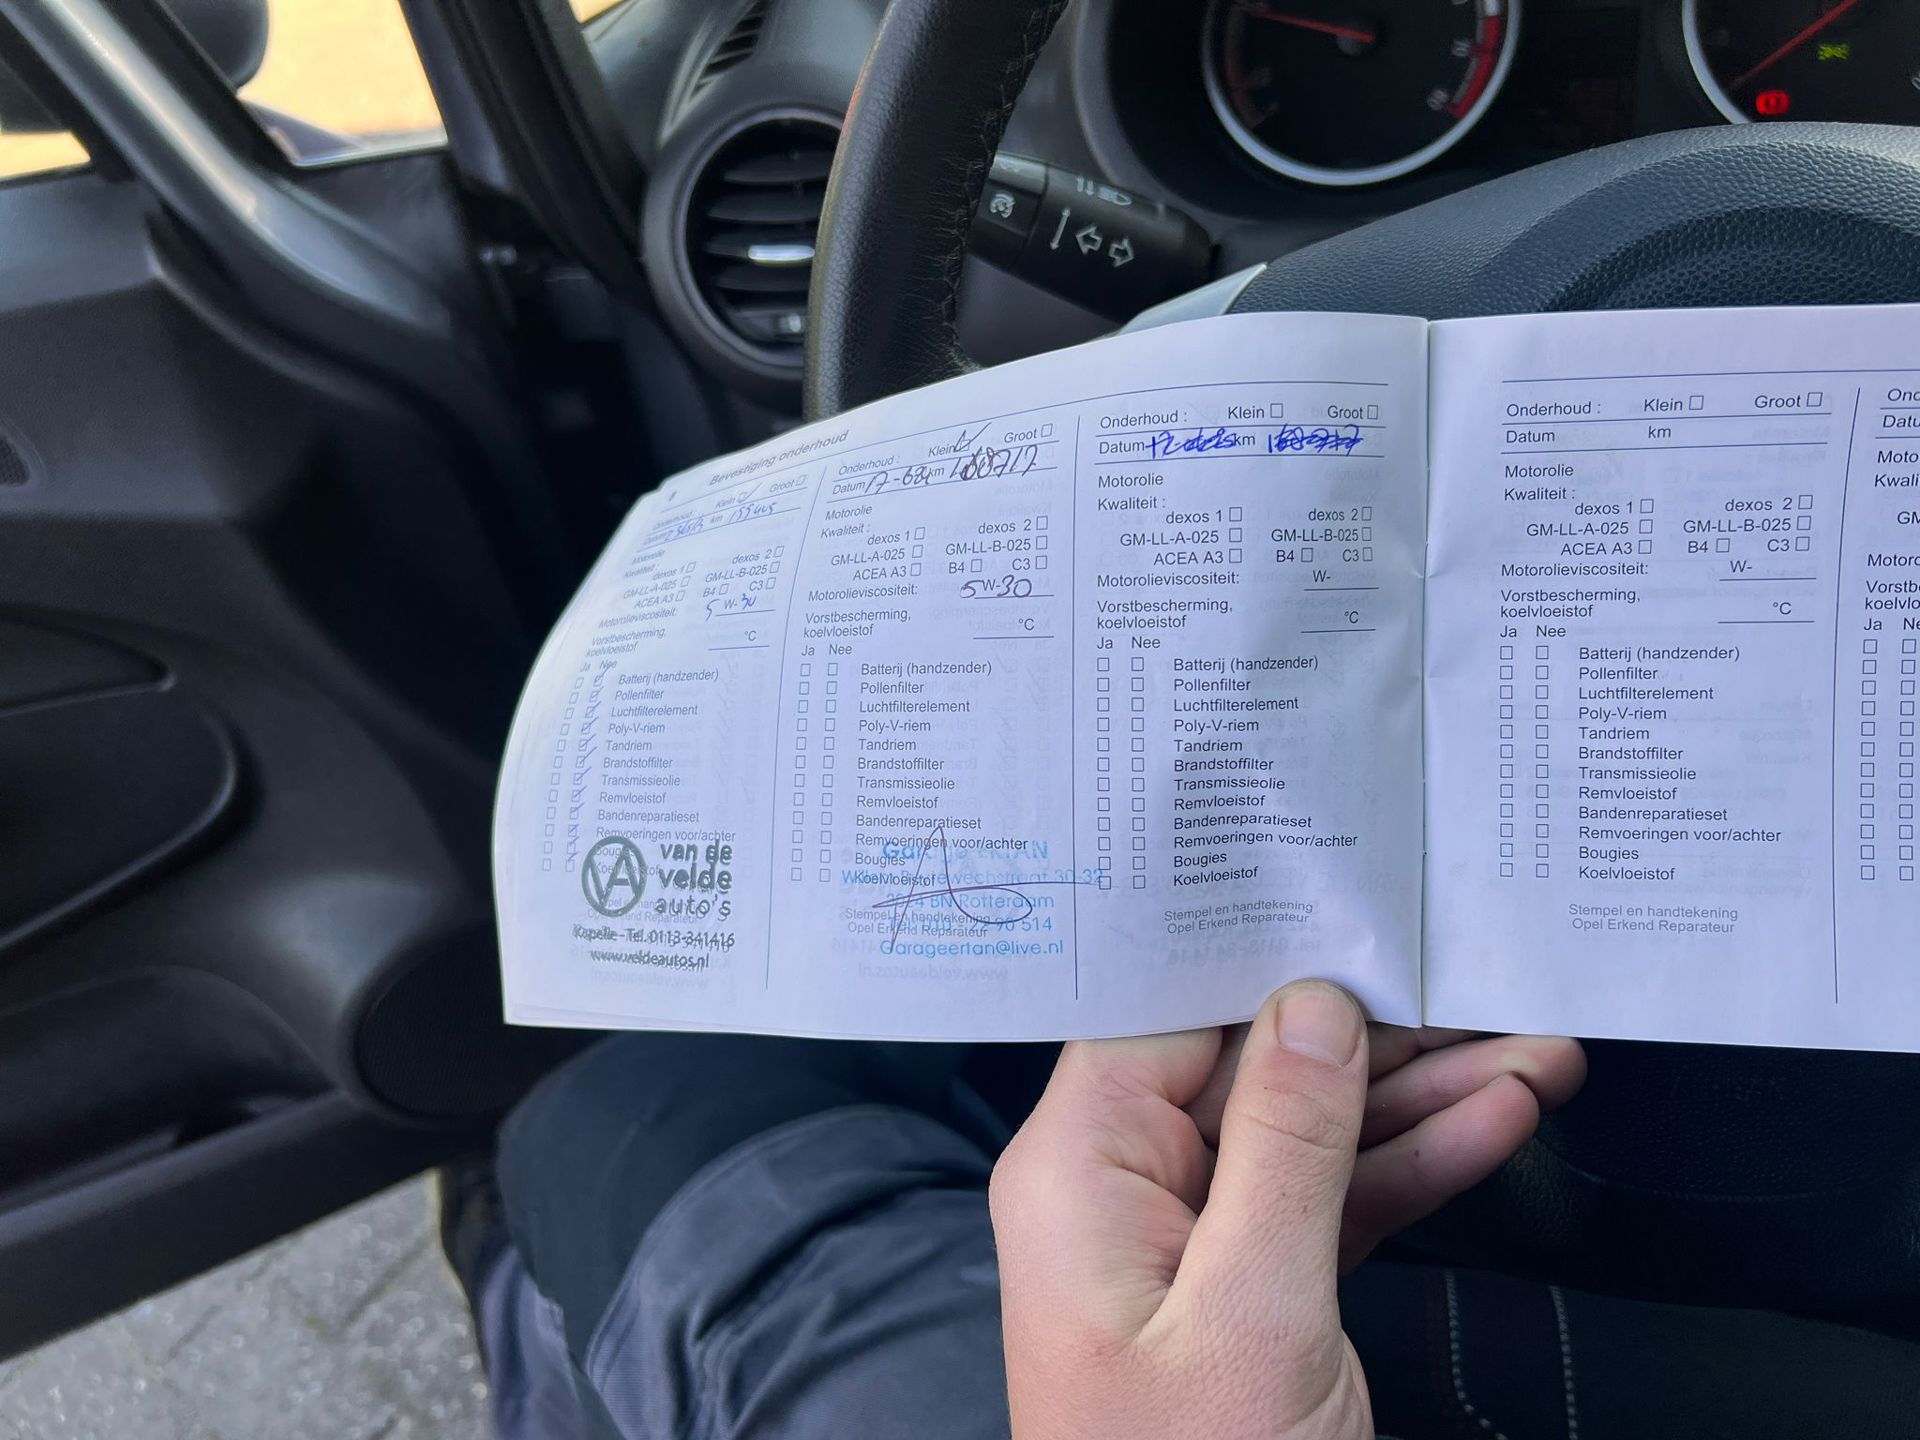 8 Bevestiging onderhoud
Onderhoud: Klein Groot
Datum km
Motorolie
Kwaliteit:
dexos 1 dexos 2
GM-LL-A-025 GM-LL-B-025
ACEA A3 B4 C3
Motorolieviscositeit: 5 W-30
Vorstbescherming,
koelvloeistof °C
Ja Nee
Batterij (handzender)
Pollenfilter
Luchtfilterelement
Poly-V-riem
Tandriem
Brandstoffilter
Transmissieolie
Remvloeistof
Bandenreparatieset
Remvoeringen voor/achter
Bougies
Koelvloeistof
VA van de
velde
auto's
Kapelle - Tel. 0113-341416
www.veldeautos.nl
Onderhoud: Klein Groot
Datum km
Motorolie
Kwaliteit:
dexos 1 dexos 2
GM-LL-A-025 GM-LL-B-025
ACEA A3 B4 C3
Motorolieviscositeit: 5W-30
Vorstbescherming,
koelvloeistof °C
Ja Nee
Batterij (handzender)
Pollenfilter
Luchtfilterelement
Poly-V-riem
Tandriem
Brandstoffilter
Transmissieolie
Remvloeistof
Bandenreparatieset
Remvoeringen voor/achter
Bougies
Koelvloeistof
30-32
BN Rotterdam
Stempel en handtekening
Opel Erkend Reparateur
90 514
Garageertan@live.nl
Onderhoud : Klein Groot
Datum km
Motorolie
Kwaliteit :
dexos 1 dexos 2
GM-LL-A-025 GM-LL-B-025
ACEA A3 B4 C3
Motorolieviscositeit: W-
Vorstbescherming,
koelvloeistof °C
Ja Nee
Batterij (handzender)
Pollenfilter
Luchtfilterelement
Poly-V-riem
Tandriem
Brandstoffilter
Transmissieolie
Remvloeistof
Bandenreparatieset
Remvoeringen voor/achter
Bougies
Koelvloeistof
Stempel en handtekening
Opel Erkend Reparateur
Onderhoud : Klein Groot
Datum km
Motorolie
Kwaliteit :
dexos 1 dexos 2
GM-LL-A-025 GM-LL-B-025
ACEA A3 B4 C3
Motorolieviscositeit: W-
Vorstbescherming,
koelvloeistof °C
Ja Nee
Batterij (handzender)
Pollenfilter
Luchtfilterelement
Poly-V-riem
Tandriem
Brandstoffilter
Transmissieolie
Remvloeistof
Bandenreparatieset
Remvoeringen voor/achter
Bougies
Koelvloeistof
Stempel en handtekening
Opel Erkend Reparateur
Ja